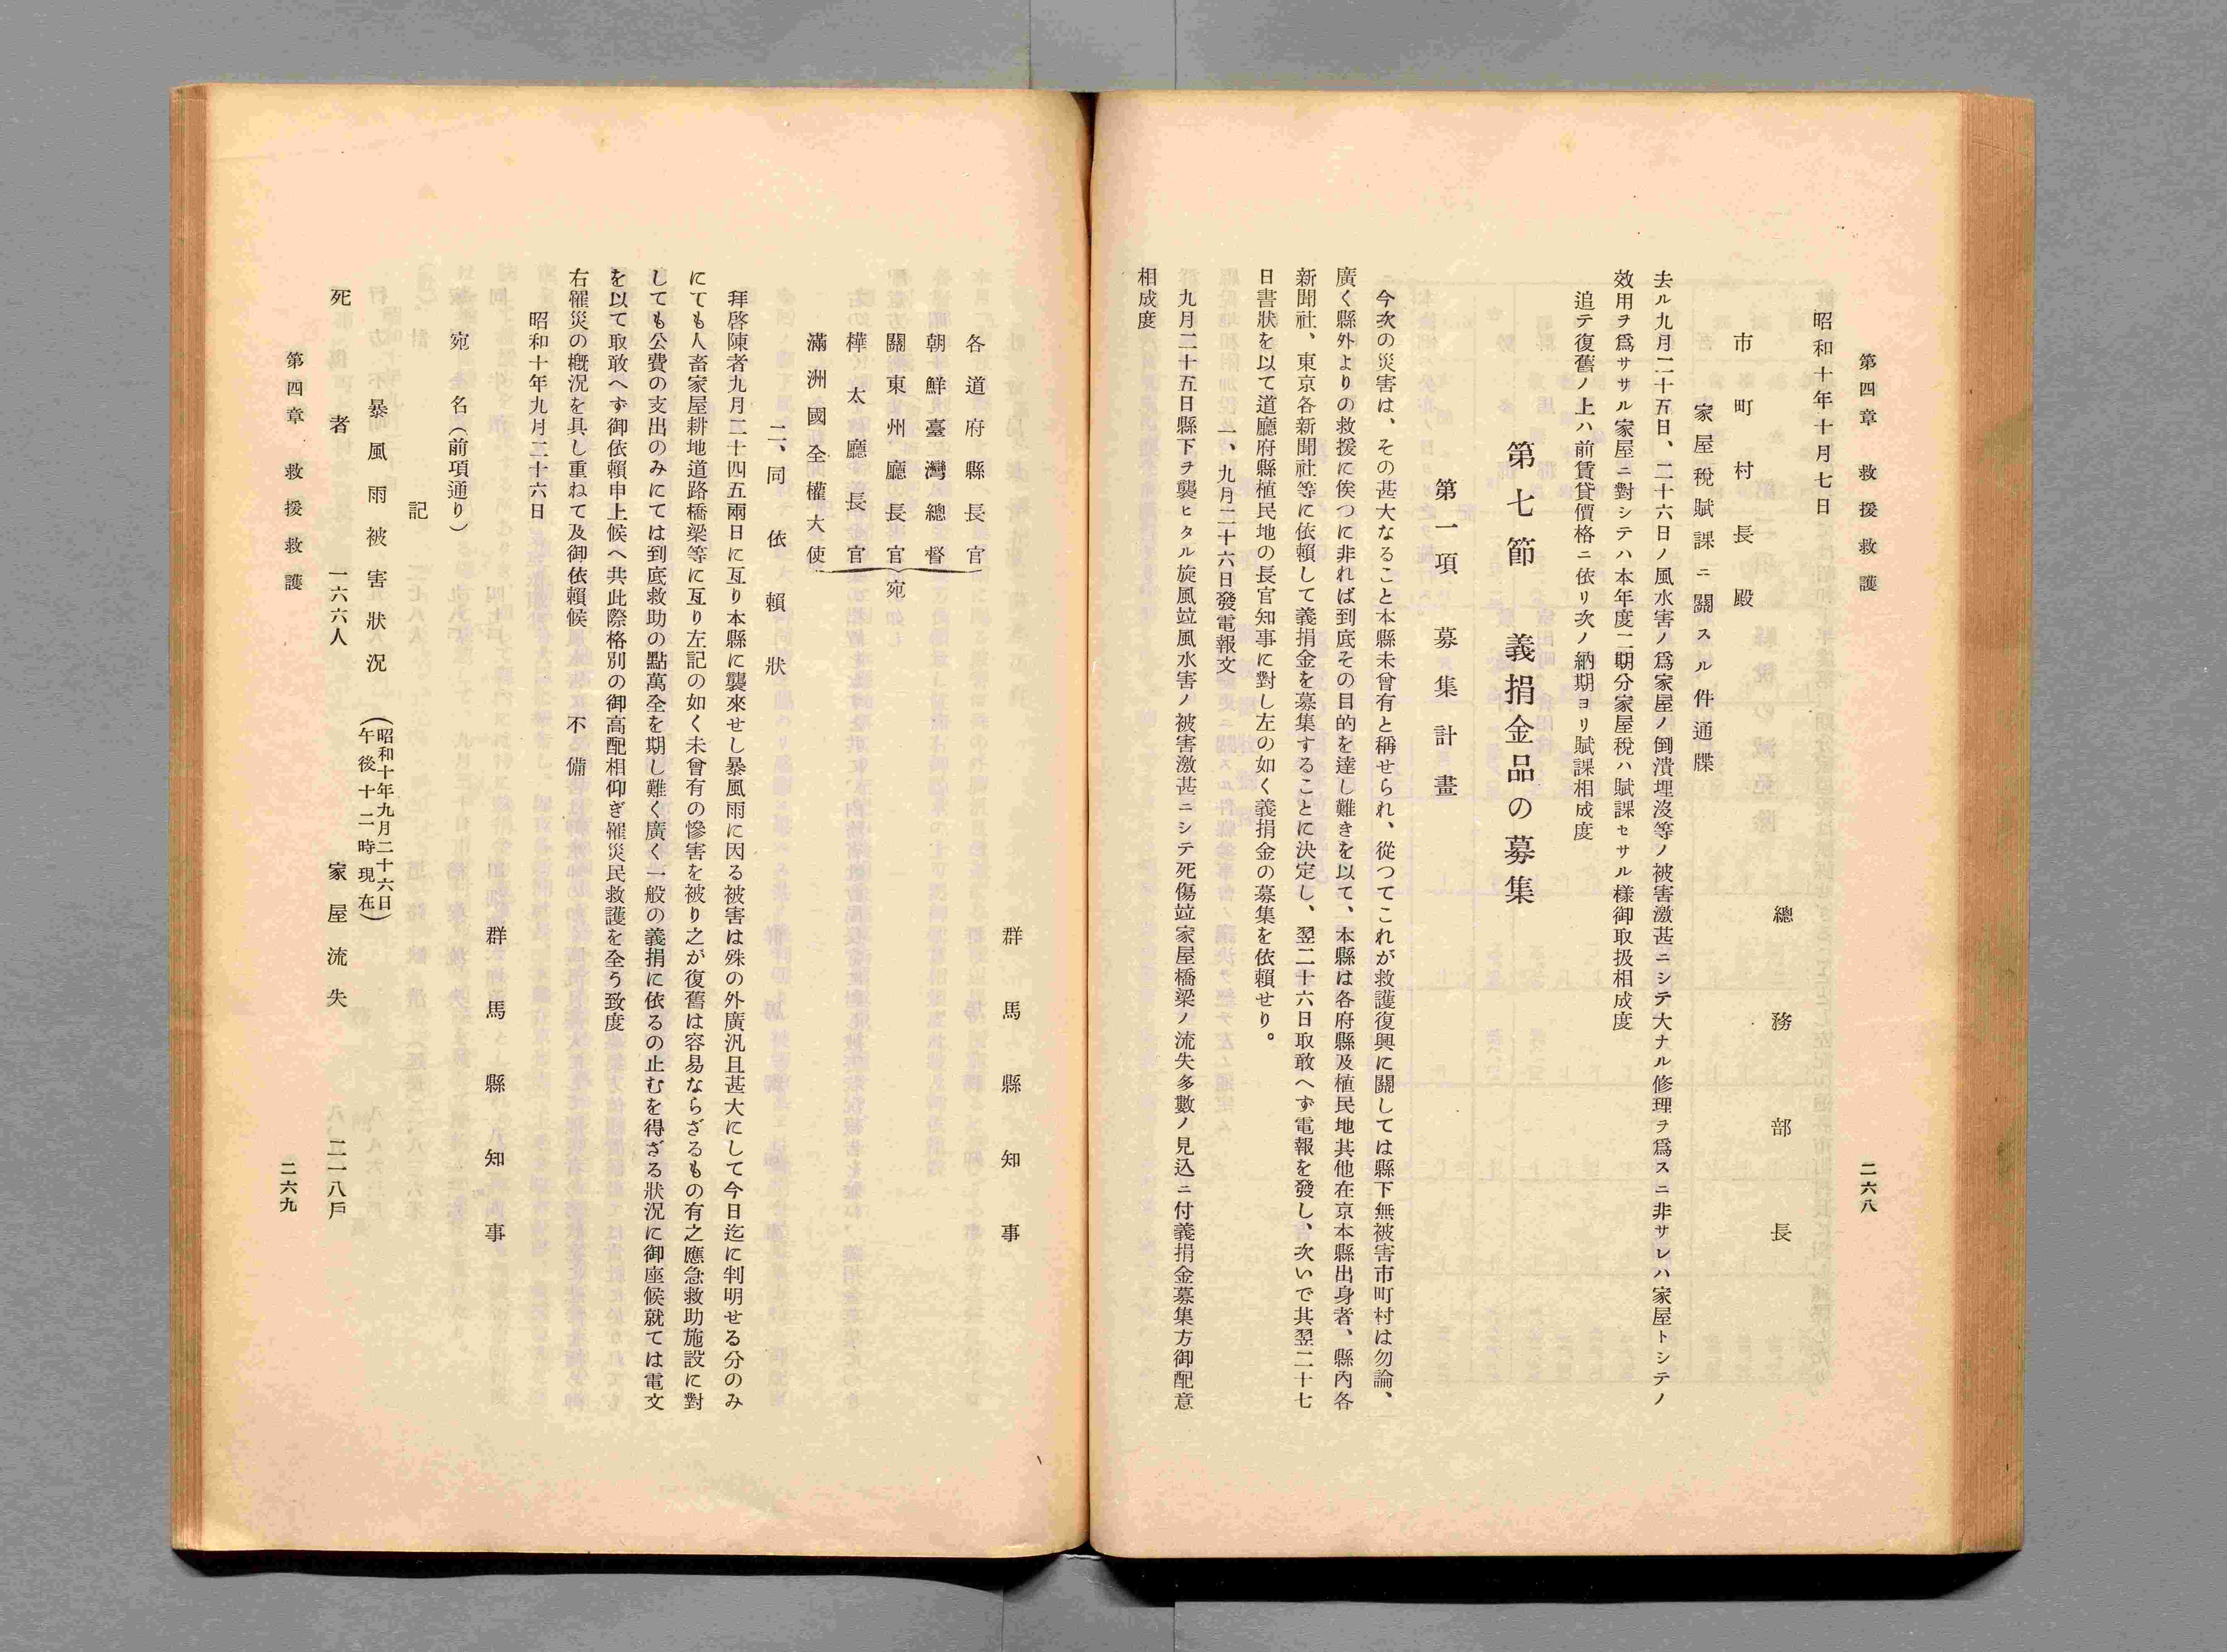 第四章　救援救護
二六八
昭和十年十月七日
總務部長
市町村長殿
家屋稅賦課ニ關スル件通牒
去ル九月二十五日、二十六日ノ風水害ノ爲家屋ノ倒潰埋沒等ノ被害激甚ニシテ大ナル修理ヲ爲スニ非サレハ家屋トシテノ
效用ヲ爲ササル家屋ニ對シテハ本年度二期分家屋稅ハ賦課セサル樣御取扱相成度
追テ復舊ノ上ハ前賃貸價格ニ依リ次ノ納期ヨリ賦課相成度
第七節　義捐金品の募集
第一項　募集計畫
今次の災害は、その甚大なること本縣未曾有と稱せられ、從つてこれが救護復興に關しては縣下無被害市町村は勿論、
廣く縣外よりの救援に俟つに非れば到底その目的を達し難きを以て、本縣は各府縣及植民地其他在京本縣出身者、縣內各
新聞社、東京各新聞社等に依賴して義捐金を募集することに決定し、翌二十六日取敢へず電報を發し、次いで其翌二十七
日書狀を以て道廳府縣植民地の長官知事に對し左の如く義捐金の募集を依賴せり。
一、九月二十六日發電報文
九月二十五日縣下ヲ襲ヒタル旋風竝風水害ノ被害激甚ニシテ死傷竝家屋橋梁ノ流失多數ノ見込ニ付義捐金募集方御配意
相成度
群馬縣知事
各道府縣長官
朝鮮臺灣總督
關東州廳長官　宛
樺太廳長官
滿洲國全權大使
二、同依賴狀
拜啓陳者九月二十四五兩日に亙り本縣に襲來せし暴風雨に因る被害は殊の外廣汎且甚大にして今日迄に判明せる分のみ
にても人畜家屋耕地道路橋梁等に亙り左記の如く未曾有の慘害を被り之が復舊は容易ならざるもの有之應急救助施設に對
しても公費の支出のみにては到底救助の點萬全を期し難く廣く一般の義捐に依るの止むを得ざる狀況に御座候就ては電文
を以て取敢へず御依賴申上候へ共此際格別の御高配相仰ぎ罹災民救護を全う致度
右罹災の槪況を具し重ねて及御依賴候　不備
昭和十年九月二十六日
群馬縣知事
宛名（前項通り）
記
暴風雨被害狀況（昭和十年九月二十六日
午後十二時現在）
死者　一六六人　家屋流失　二一八戶
第四章　救援救護
二六九